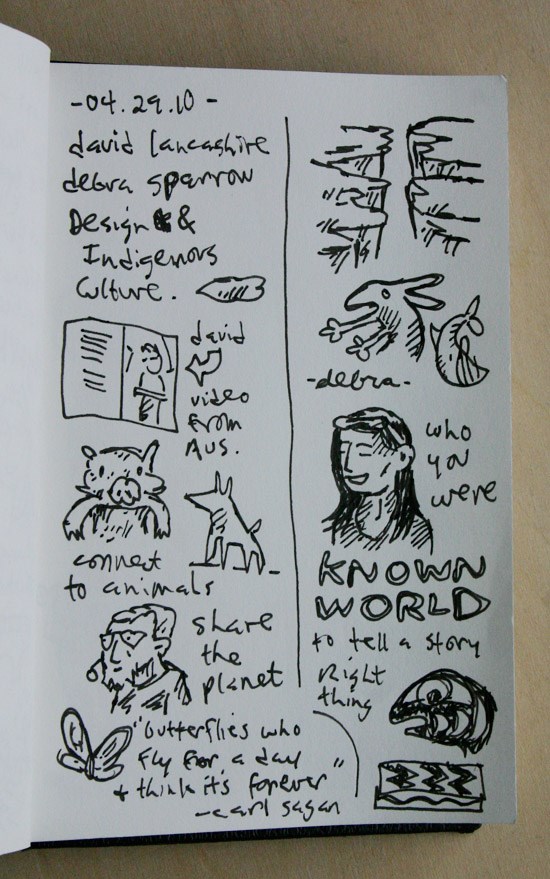 -04.29.10-
david lancashire
debra sparrow
Design &
Indigenous
Culture.
david
video
from
AUS.
connect
to animals
share
the
planet
"butterflies who
fly for a day
+ think it's forever"
-carl sagan
-debra-
who
you
were
KNOWN
WORLD
to tell a story
Right
thing